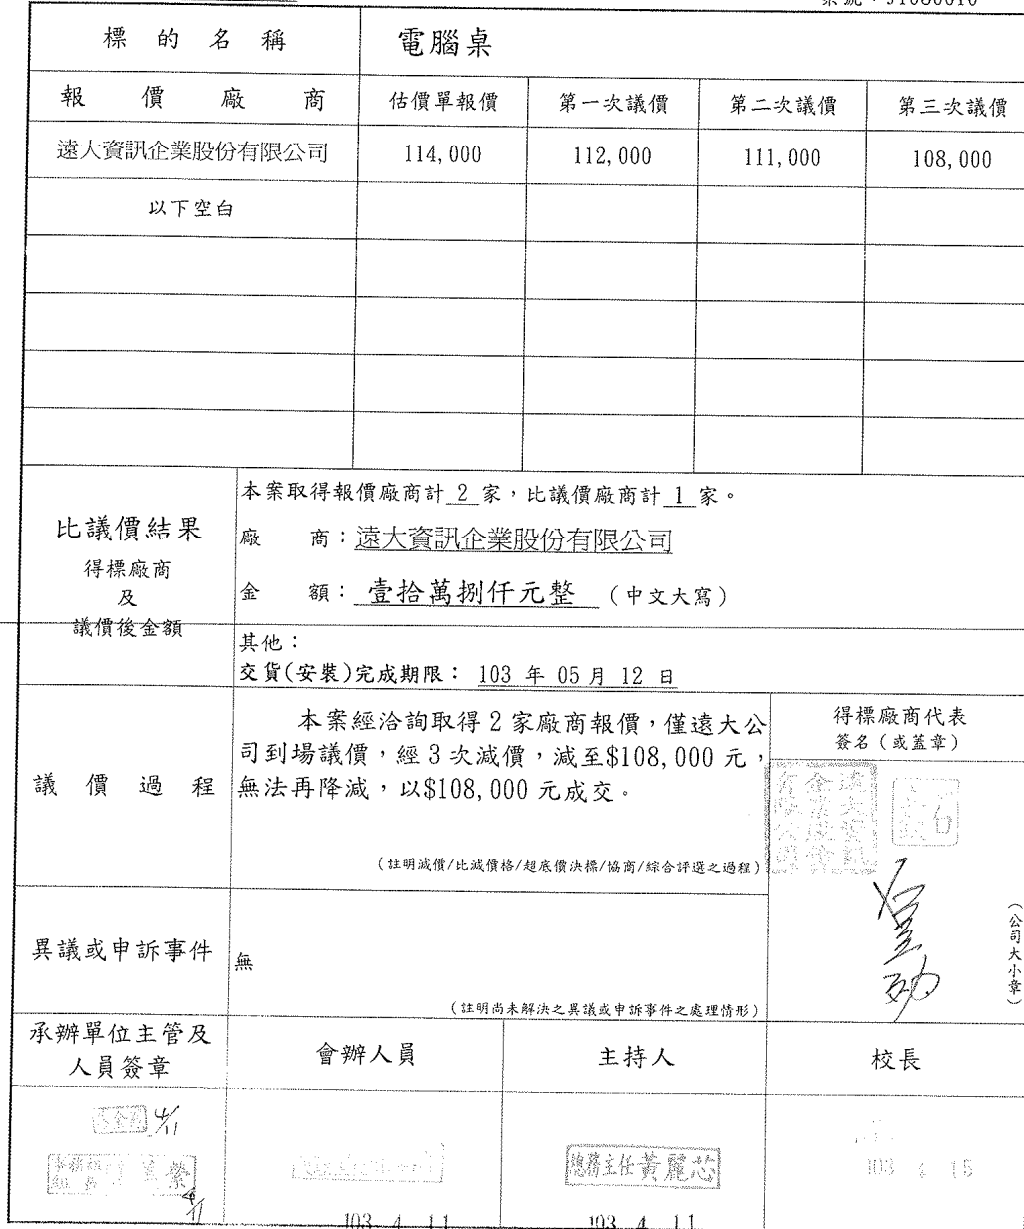 標的名稱 電腦桌
報價廠商 估價單報價 第一次議價 第二次議價 第三次議價
遠大資訊企業股份有限公司 114,000 112,000 111,000 108,000
以下空白
比議價結果
得標廠商
及
議價後金額
本案取得報價廠商計 2 家，比議價廠商計 1 家。
廠商：遠大資訊企業股份有限公司
金額：壹拾萬捌仟元整（中文大寫）
其他：
交貨(安裝)完成期限： 103 年 05 月 12 日
議價過程
本案經洽詢取得 2 家廠商報價，僅遠大公
司到場議價，經 3 次減價，減至$108,000 元，
無法再降減，以$108,000 元成交。
（註明減價/比減價格/超底價決標/協商/綜合評選之過程）
得標廠商代表
簽名（或蓋章）
（公司大小章）
異議或申訴事件
無
（註明尚未解決之異議或申訴事件之處理情形）
承辦單位主管及
人員簽章
會辦人員
主持人
校長
4/11
總務主任黃麗芯
103 4 15
4/11
103 4 11
103 4 11